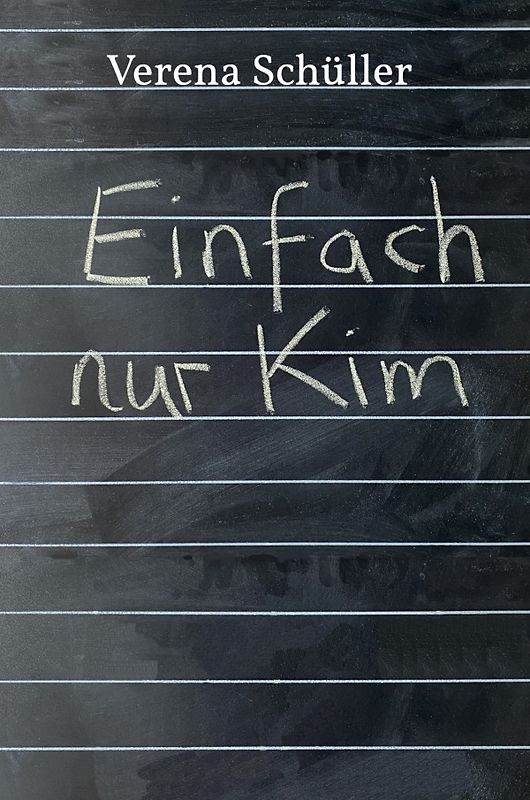 Verena Schüller
Einfach
nur Kim